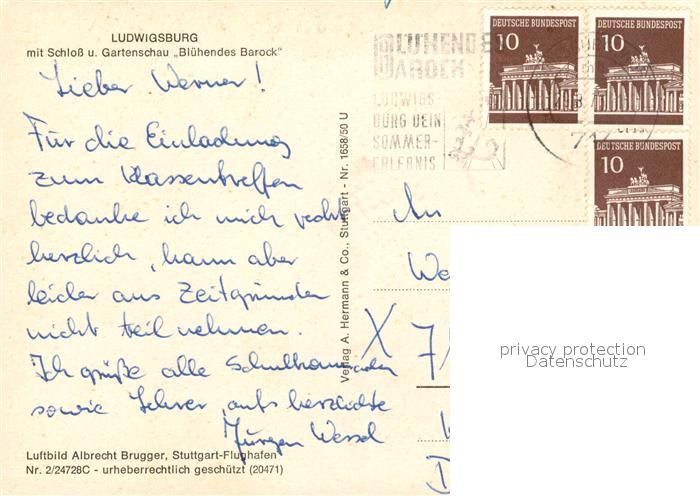 LUDWIGSBURG
mit Schloß u. Gartenschau „Blühendes Barock"
Lieber Werner!
Für die Einladung
zum Klassentreffen
bedanke ich mich recht
herzlich, kann aber
leider aus Zeitgründen
nicht teilnehmen.
Ich grüße alle Schulkameraden
sowie Lehrer, aufs herzlichste
Jürgen Wessel
Luftbild Albrecht Brugger, Stuttgart-Flughafen
Nr. 2/24728C - urheberrechtlich geschützt (20471)
Verlag A. Hermann & Co., Stuttgart - Nr. 1658/50 U
BLÜHENDES
BAROCK
LUDWIGS-
BURG DEIN
SOMMER-
ERLEBNIS
DEUTSCHE BUNDESPOST
10
DEUTSCHE BUNDESPOST
10
DEUTSCHE BUNDESPOST
10
An
We
X 7
privacy protection
Datenschutz
D